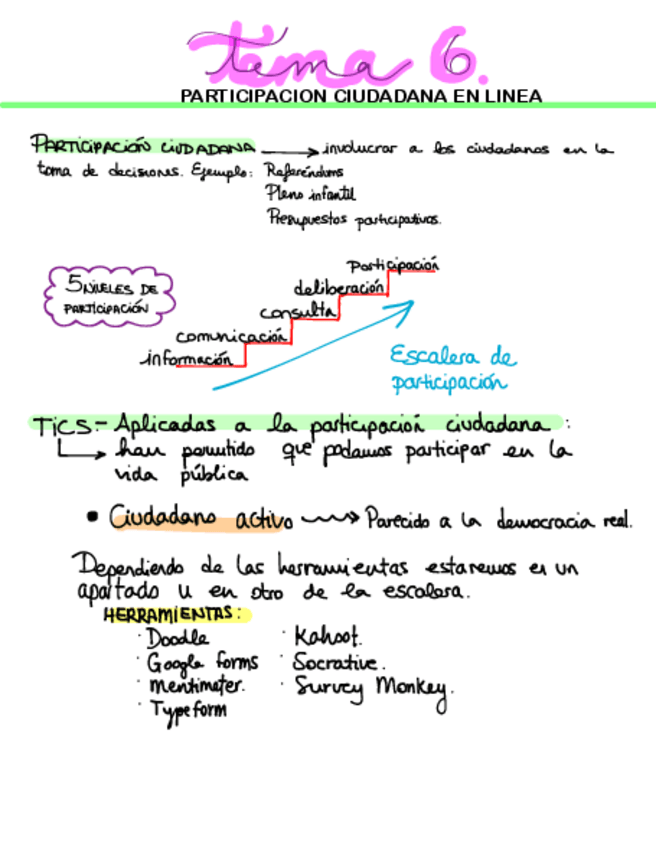 tema 6.
PARTICIPACION CIUDADANA EN LINEA
PARTICIPACIÓN CIUDADANA → involucrar a los ciudadanos en la
toma de decisiones. Ejemplo: Referéndums
Pleno infantil
Presupuestos participativos.
5 NIVELES DE
PARTICIPACIÓN
Participación
deliberación
consulta
comunicación
información
Escalera de
participación
TICS - Aplicadas a la participación ciudadana :
→ han permitido que podamos participar en la
vida pública
• Ciudadano activo → Parecido a la democracia real.
Dependiendo de las herramientas estaremos en un
apartado u en otro de la escalera.
HERRAMIENTAS:
· Doodle
· Google forms
· mentimeter.
· Typeform
· Kahoot.
· Socrative.
· Survey Monkey.